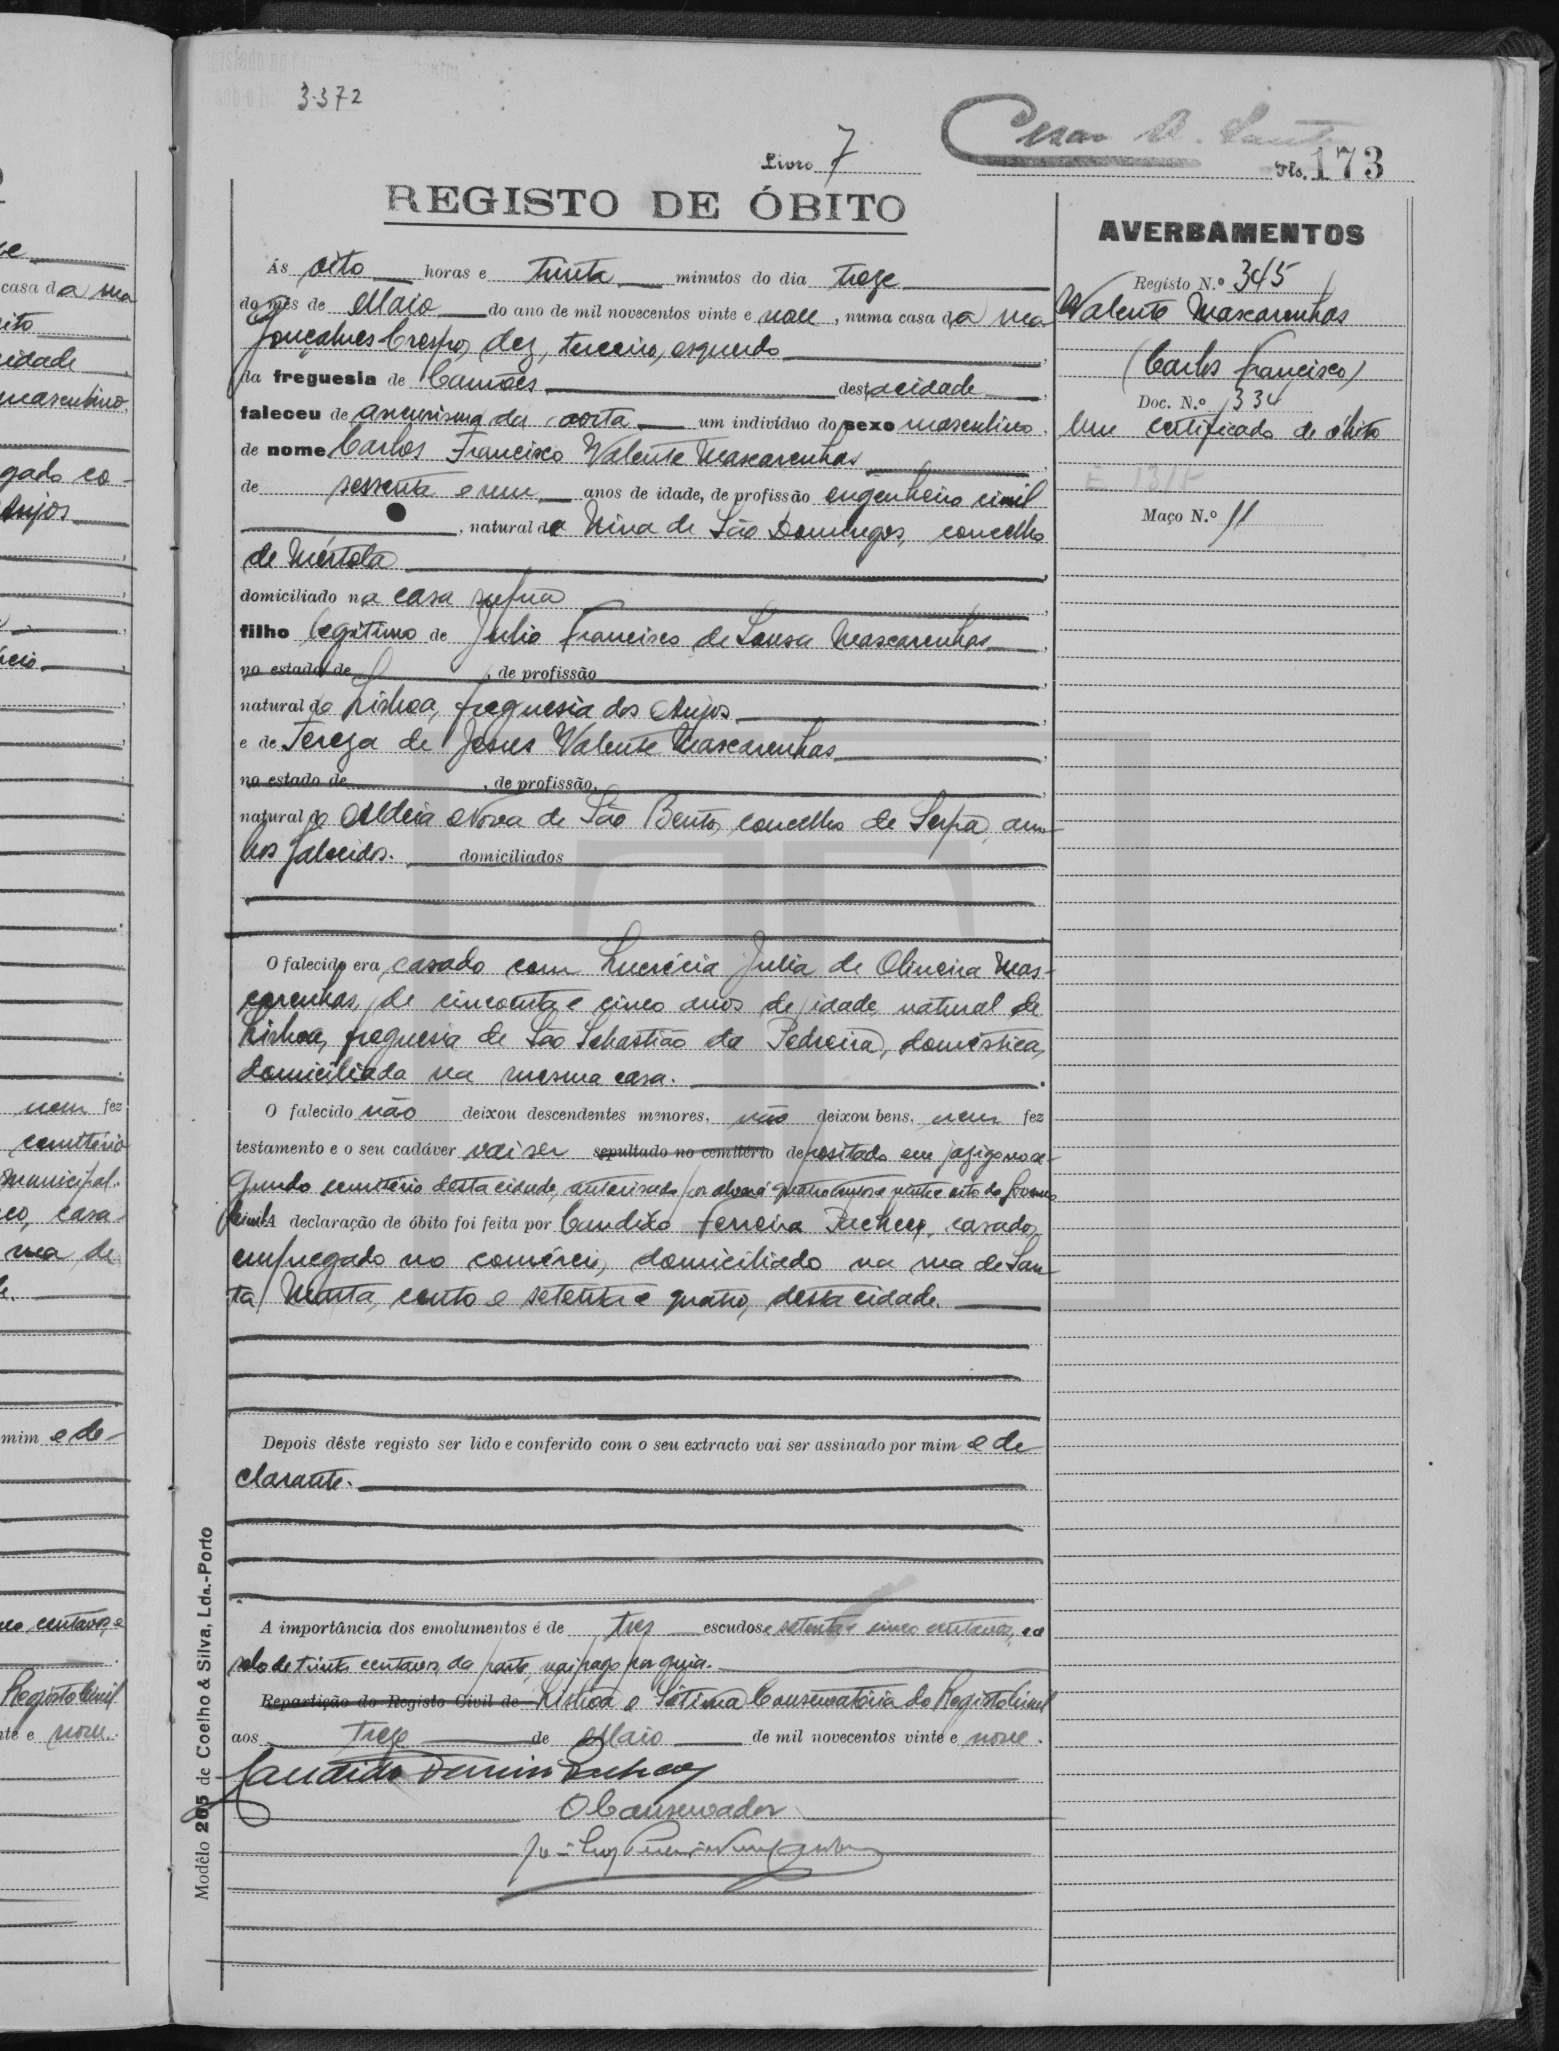 3372
Livro 7
Cesar A. Santos
Fls. 173
REGISTO DE ÓBITO
Ás oito horas e trinta minutos do dia treze
do mês de Maio do ano de mil novecentos vinte e nove, numa casa da rua
Gonçalves Crespo, dez, terceiro, esquerdo
da freguesia de Camões desta cidade
faleceu de aneurisma da aorta um indivíduo do sexo masculino,
de nome Carlos Francisco Valente Mascarenhas
de sessenta e um anos de idade, de profissão engenheiro civil
, natural da Mina de São Domingos, concelho
de Mértola
domiciliado na casa supra
filho legitimo de Julio Francisco de Sousa Mascarenhas
no estado de , de profissão
natural de Lisboa, freguesia dos Anjos
e de Tereza de Jesus Valente Mascarenhas
no estado de , de profissão
natural de Aldeia Nova de São Bento, concelho de Serpa, am-
bos falecidos. domiciliados
O falecido era casado com Lucrécia Julia de Oliveira Mas-
carenhas, de cincoenta e cinco anos de idade, natural de
Lisboa, freguesia de São Sebastião da Pedreira, doméstica,
domiciliada na mesma casa.
O falecido não deixou descendentes menores, não deixou bens, nem fez
testamento e o seu cadáver vai ser sepultado no cemitério depositado em jazigo no se-
gundo cemitério desta cidade, autorisado por alvará quatrocentos e vinte e oito do Governo
Civil. A declaração de óbito foi feita por Candido Ferreira Pacheco, casado,
empregado no comércio, domiciliado na rua de San-
ta Marta, cento e setenta e quatro, desta cidade.
Depois dêste registo ser lido e conferido com o seu extracto vai ser assinado por mim e de-
clarante.
A importância dos emolumentos é de tres escudos e setenta e cinco centavos, e o
selo de trinta centavos da parte, vai pago por guia.
Repartição do Registo Civil de Lisboa e Sétima Conservatória do Registo Civil
aos treze de Maio de mil novecentos vinte e nove.
Candido Ferreira Pacheco
O Conservador
Modêlo 205 de Coelho & Silva, Lda.-Porto
AVERBAMENTOS
Registo N.º 345
Valente Mascarenhas
(Carlos Francisco)
Doc. N.º 334
Um certificado de óbito
E 1315
Maço N.º 11
casa da rua
cidade
masculino,
gado co-
Anjos
nem fez
cemitério
municipal.
casa
rua de
mim e de-
centavos, e
Registo Civil
e nove.